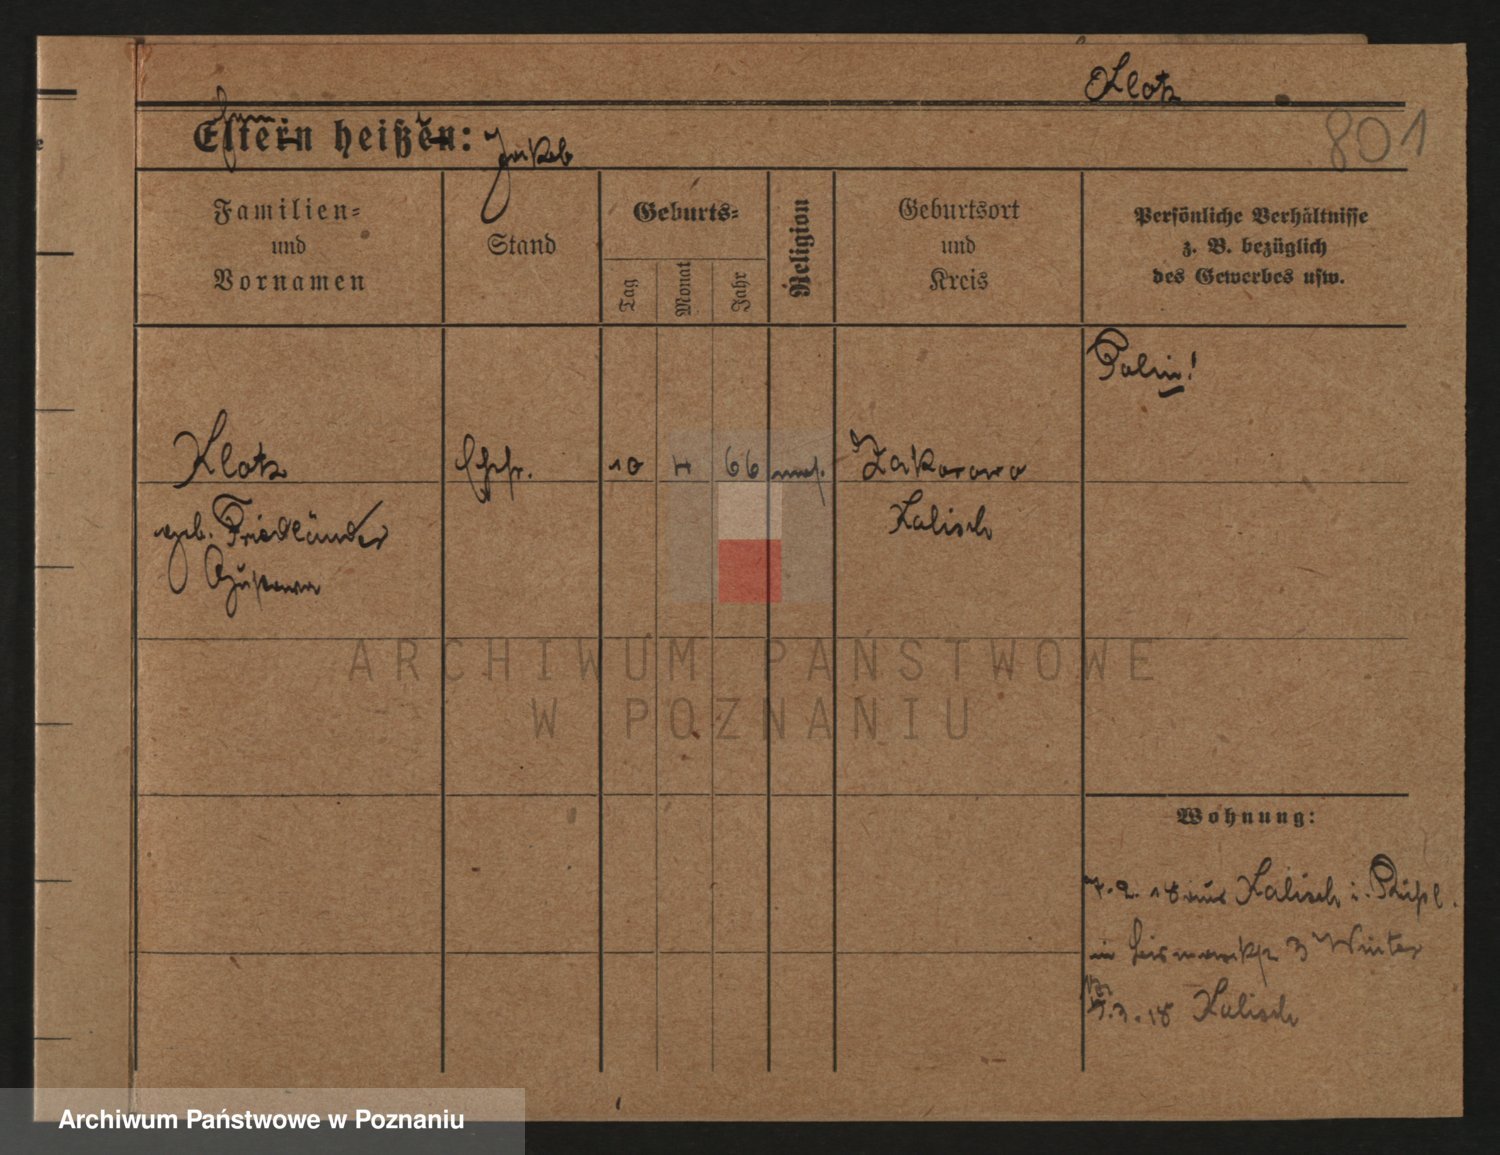 Klotz
801
Eltern heißen:
Jakob
Familien-
und
Vornamen
Stand
Geburts-
Tag
Monat
Jahr
Religion
Geburtsort
und
Kreis
Persönliche Verhältnisse
z. B. bezüglich
des Gewerbes usw.
Polin!
Klotz
Ehefr.
10
66
mos.
Kalisch
geb. Friedländer
Gustawa
Wohnung:
7.2.18 aus Kalisch i. Rußl.
in Bismarckstr 3 Winter
7.3.18 Kalisch
ARCHIWUM PAŃSTWOWE
W POZNANIU
Archiwum Państwowe w Poznaniu